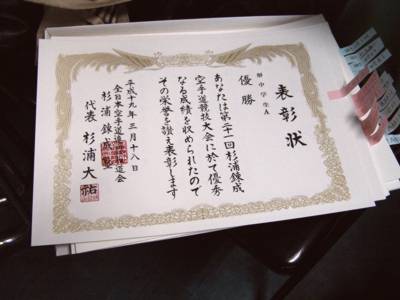 表彰状
中学生A
優勝
あなたは第二十一回杉浦錬成
空手道競技大会に於て優秀
なる成績を収められたので
その栄誉を讃え表彰します
平成十九年三月十八日
全日本空手道
杉浦錬成塾
代表 杉浦大祐